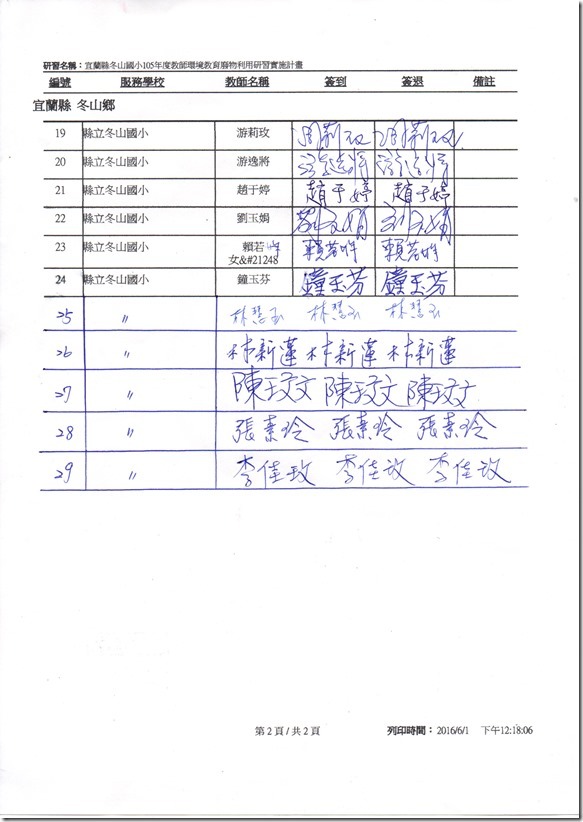 研習名稱：宜蘭縣冬山國小105年度教師環境教育廢物利用研習實施計畫
編號 服務學校 教師名稱 簽到 簽退 備註
宜蘭縣 冬山鄉
19 縣立冬山國小 游莉玫
20 縣立冬山國小 游逸將
21 縣立冬山國小 趙于婷 趙于婷 趙于婷
22 縣立冬山國小 劉玉娟
23 縣立冬山國小 賴若 賴若 賴若
女&#21248
24 縣立冬山國小 鐘玉芬 鐘玉芬 鐘玉芬
25 〃 林慧玉 林慧玉 林慧玉
26 〃 林新蓮 林新蓮 林新蓮
27 〃 陳玟文 陳玟文 陳玟文
28 〃 張素玲 張素玲 張素玲
29 〃 李佳玫 李佳玫 李佳玫
第 2 頁 / 共 2 頁 列印時間： 2016/6/1 下午12:18:06